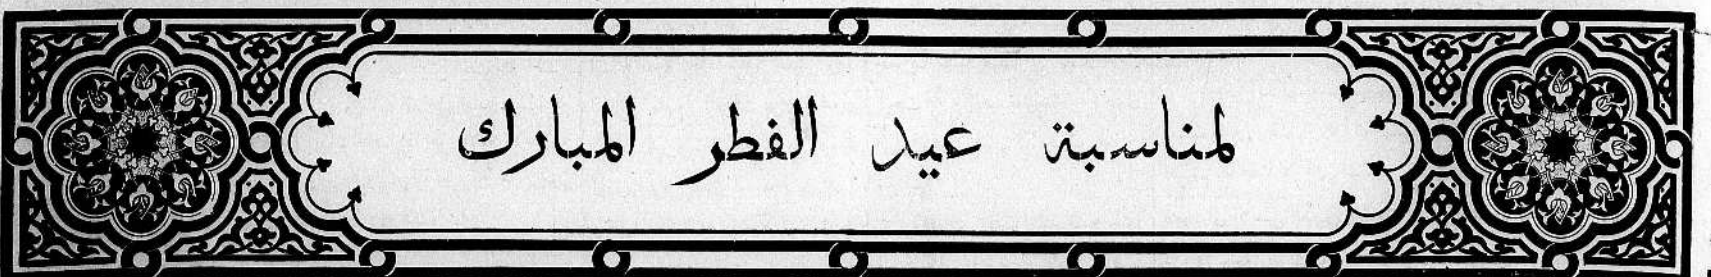 لمناسبة عيد الفطر المبارك